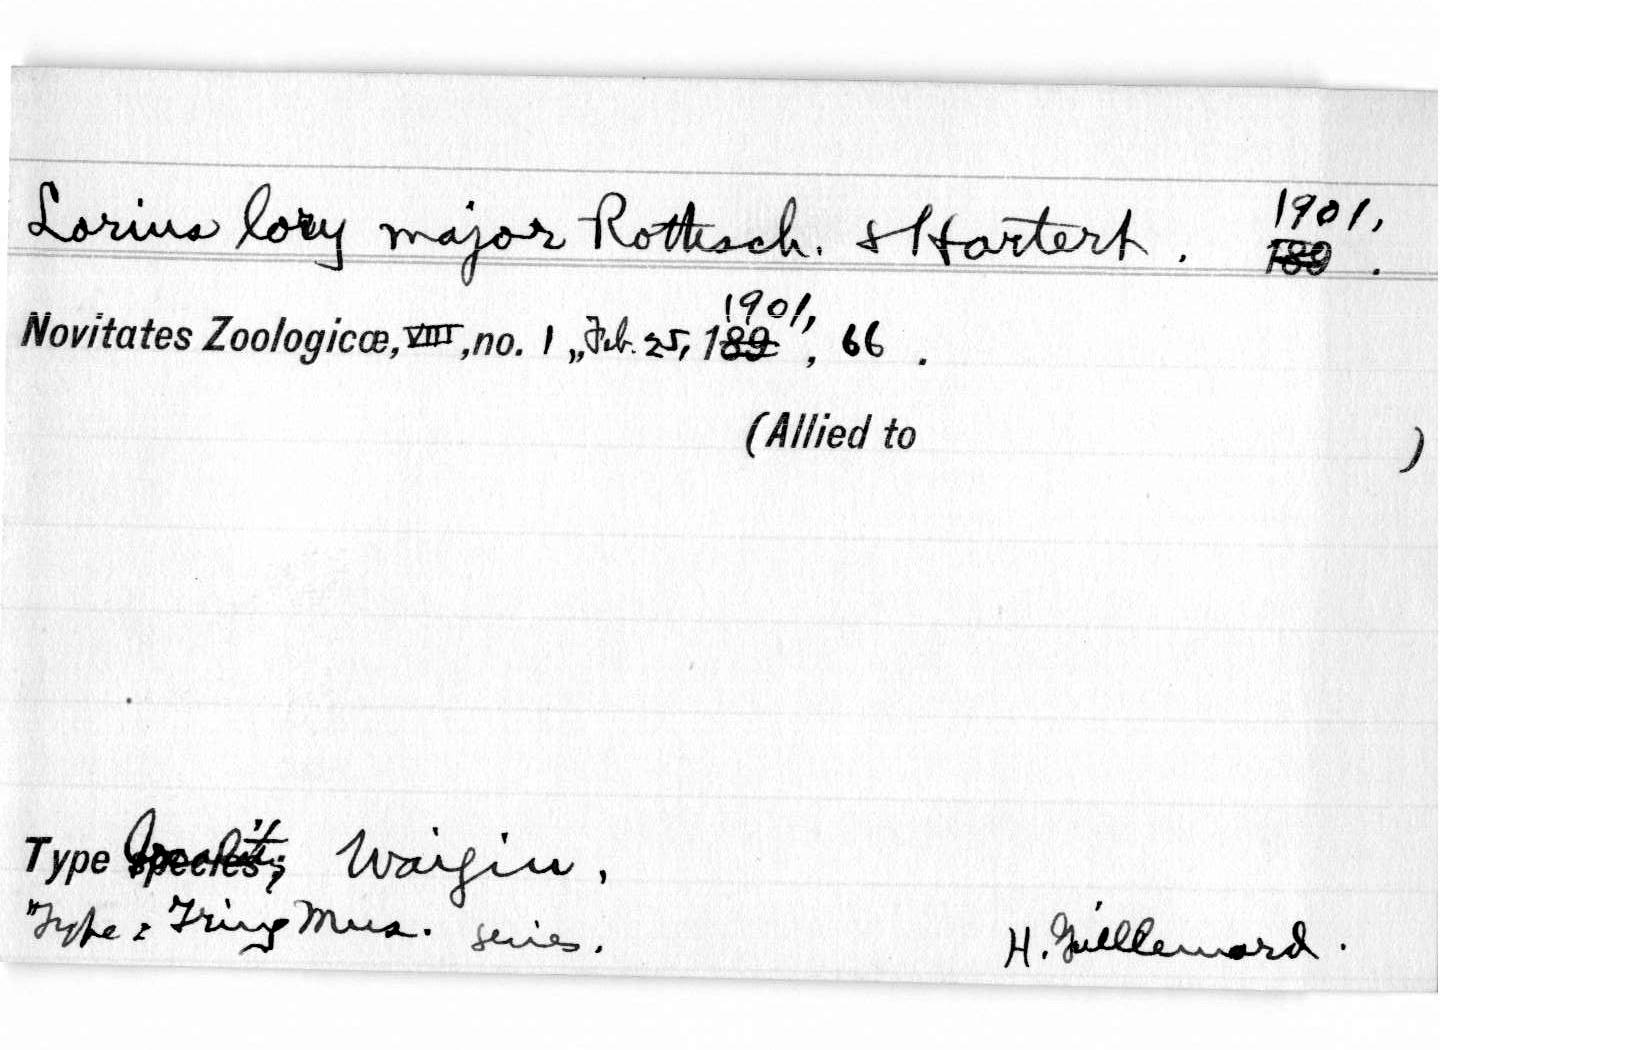 Lorius lory major Rothsch. & Hartert. 1901,
189 .
Novitates Zoologicæ, VIII, no. 1, „ Feb. 25, 189 1901, , 66 .
(Allied to )
Type species; Locality; Waigiu,
Type: Tring Mus. series.
H. Guillemard.